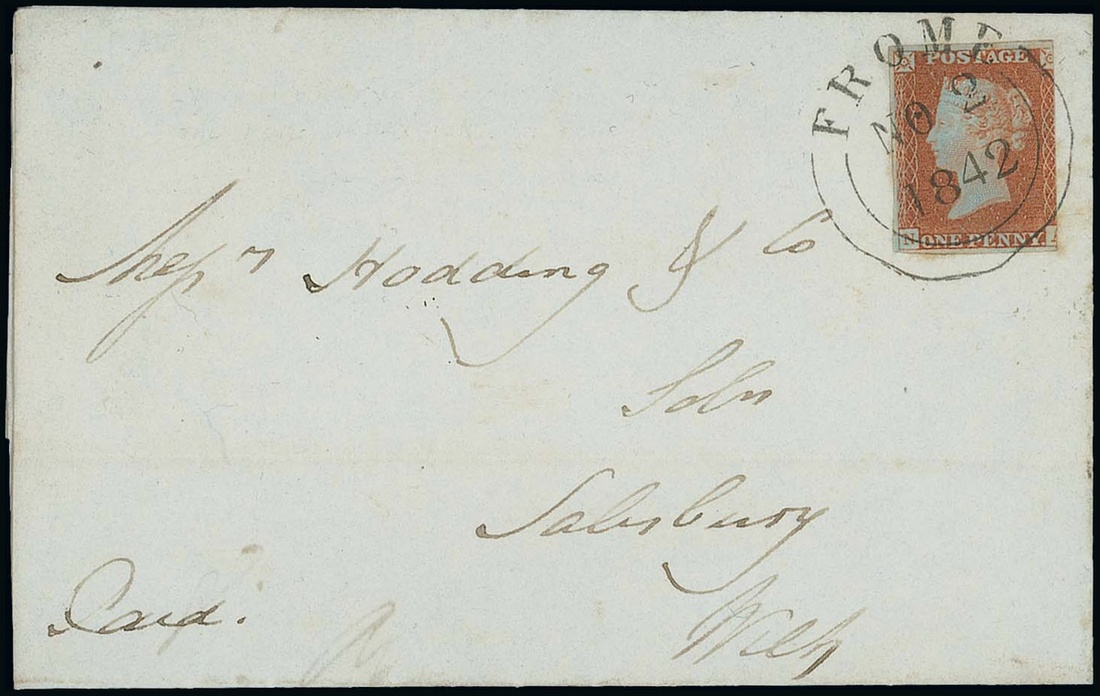 FROME
NO 2
1842
POSTAGE
N ONE PENNY
Messrs Hodding & Co
Solrs
Salisbury
Wilts
Paid.